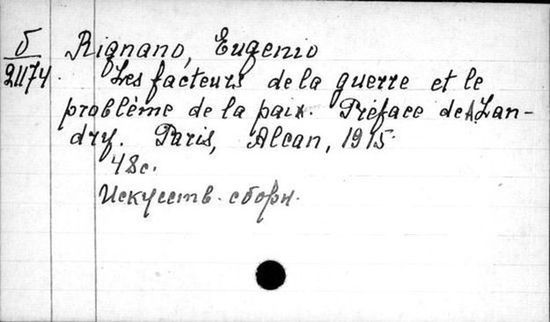 б Rignano, Eugenio
21174. Les facteurs de la guerre et le
problème de la paix. Préface de A. Lan-
dry. Paris, Alcan, 1915.
48с.
Искусств. сборн.